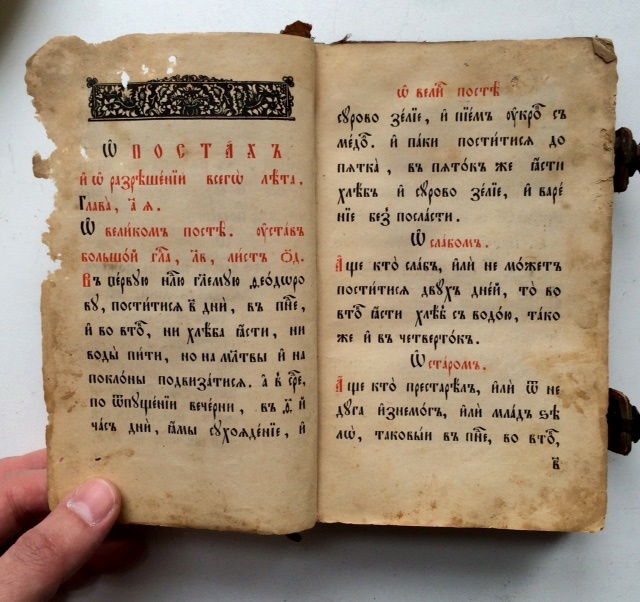 Ѡ҆ ПОСТА́ХЪ
и҆ ѡ҆ разрѣше́нїи всегѡ̀ лѣ́та.
Глава̀, а҃ ѧ.
Ѡ҆ вели́комъ постѣ̀. ᲂу҆ста́въ
большо́й гл҃а, л҃в, ли́стъ ѻ҃д.
Въ пе́рвую нл҃ю гл҃емую ѳео́дѡро
ву, пости́тисѧ в҃ днѝ, въ пн҃е,
и҆ во вто̑, ни хлѣ́ба ꙗ҆́сти, ни
воды̀ пи́ти, но на мл҃твы и҆ на
покло́ны подвиза́тисѧ. а҆ в҆ сре̑,
по ѿпуще́нїи вече́рни, въ д҃, й
ча́съ днѝ, ꙗ҆́мы сухоѧде́нїе, и҆
ѡ҆ вели̑ постѣ̀
су́рово зе́лїе, и҆ пїе́мъ ᲂу҆кро̑ съ
ме́до̑. и҆ па́ки пости́тисѧ до
пѧтка̀, въ пѧто́къ же ꙗ҆́сти
хлѣ́бъ и҆ су́рово зе́лїе, и҆ варе́
нїе без̾ посла́сти.
Ѡ҆ сла́бомъ.
А҆́ще кто̀ сла́бъ, и҆лѝ не мо́жетъ
пости́тисѧ дву́хъ дне́й, то̀ во
вто̑ ꙗ҆́сти хлѣ̑б съ водо́ю, та́ко
же и҆ въ четверто́къ.
Ѡ҆ ста́ромъ.
А҆́ще кто̀ престарѣ́лъ, и҆лѝ ѿ не
ду́га и҆знемо́гъ, и҆лѝ мла́дъ ѕѣ
лѡ̀, таковы́и въ пн҃е, во вто̑,
в҃